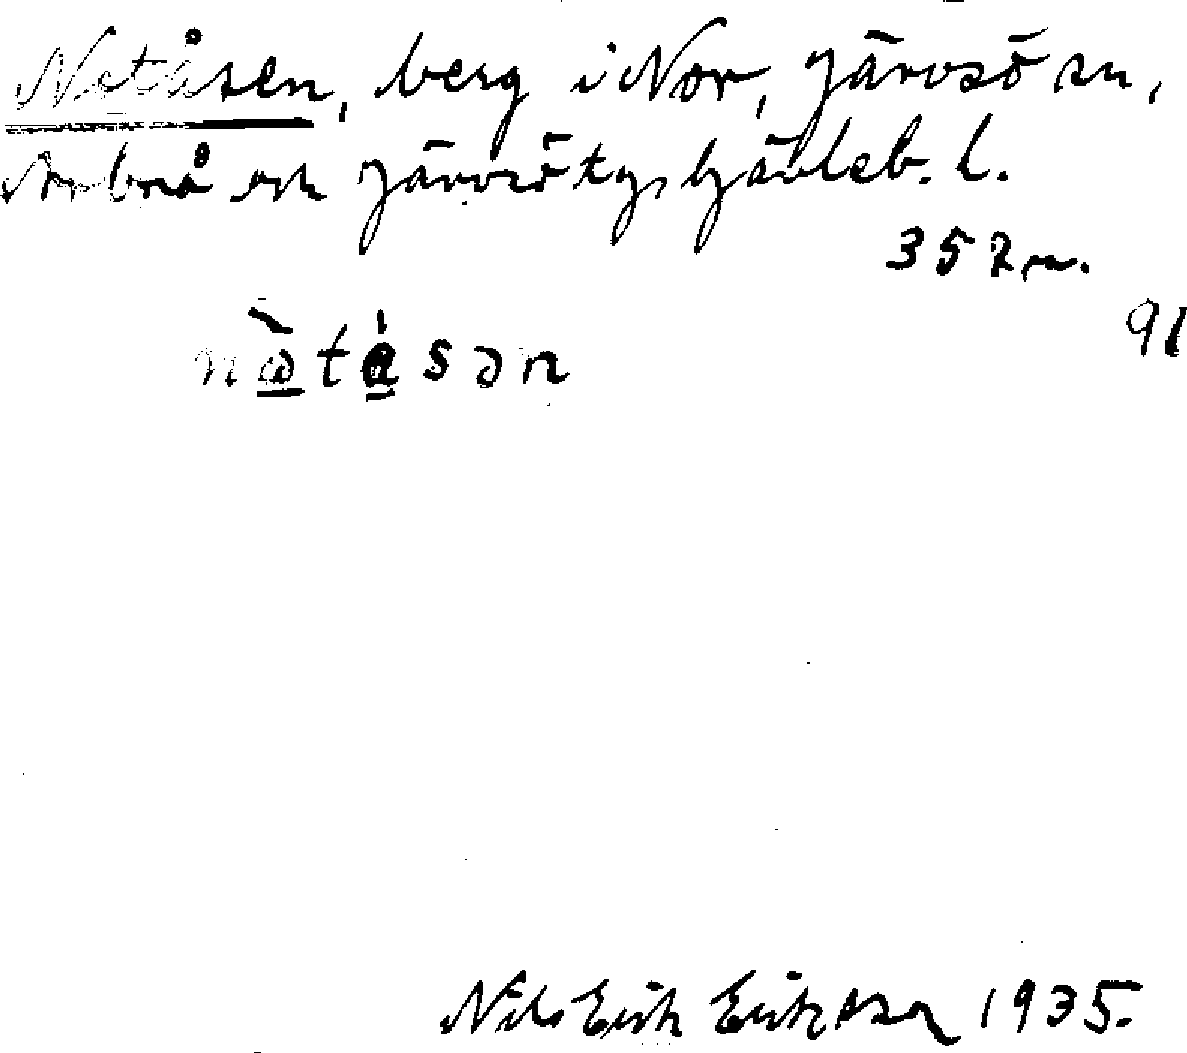 Notåsen, berg i Nor, Järvsö sn,
Arbrå och Järvsö tg, Gävleb. l.
357 m.
91
nɷ̀tásən
Nils Erik Eriksson 1935.